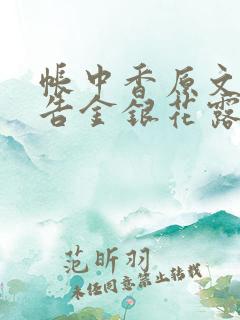 帐中香原文
告金银花露
范昕羽
未经同意禁止转载